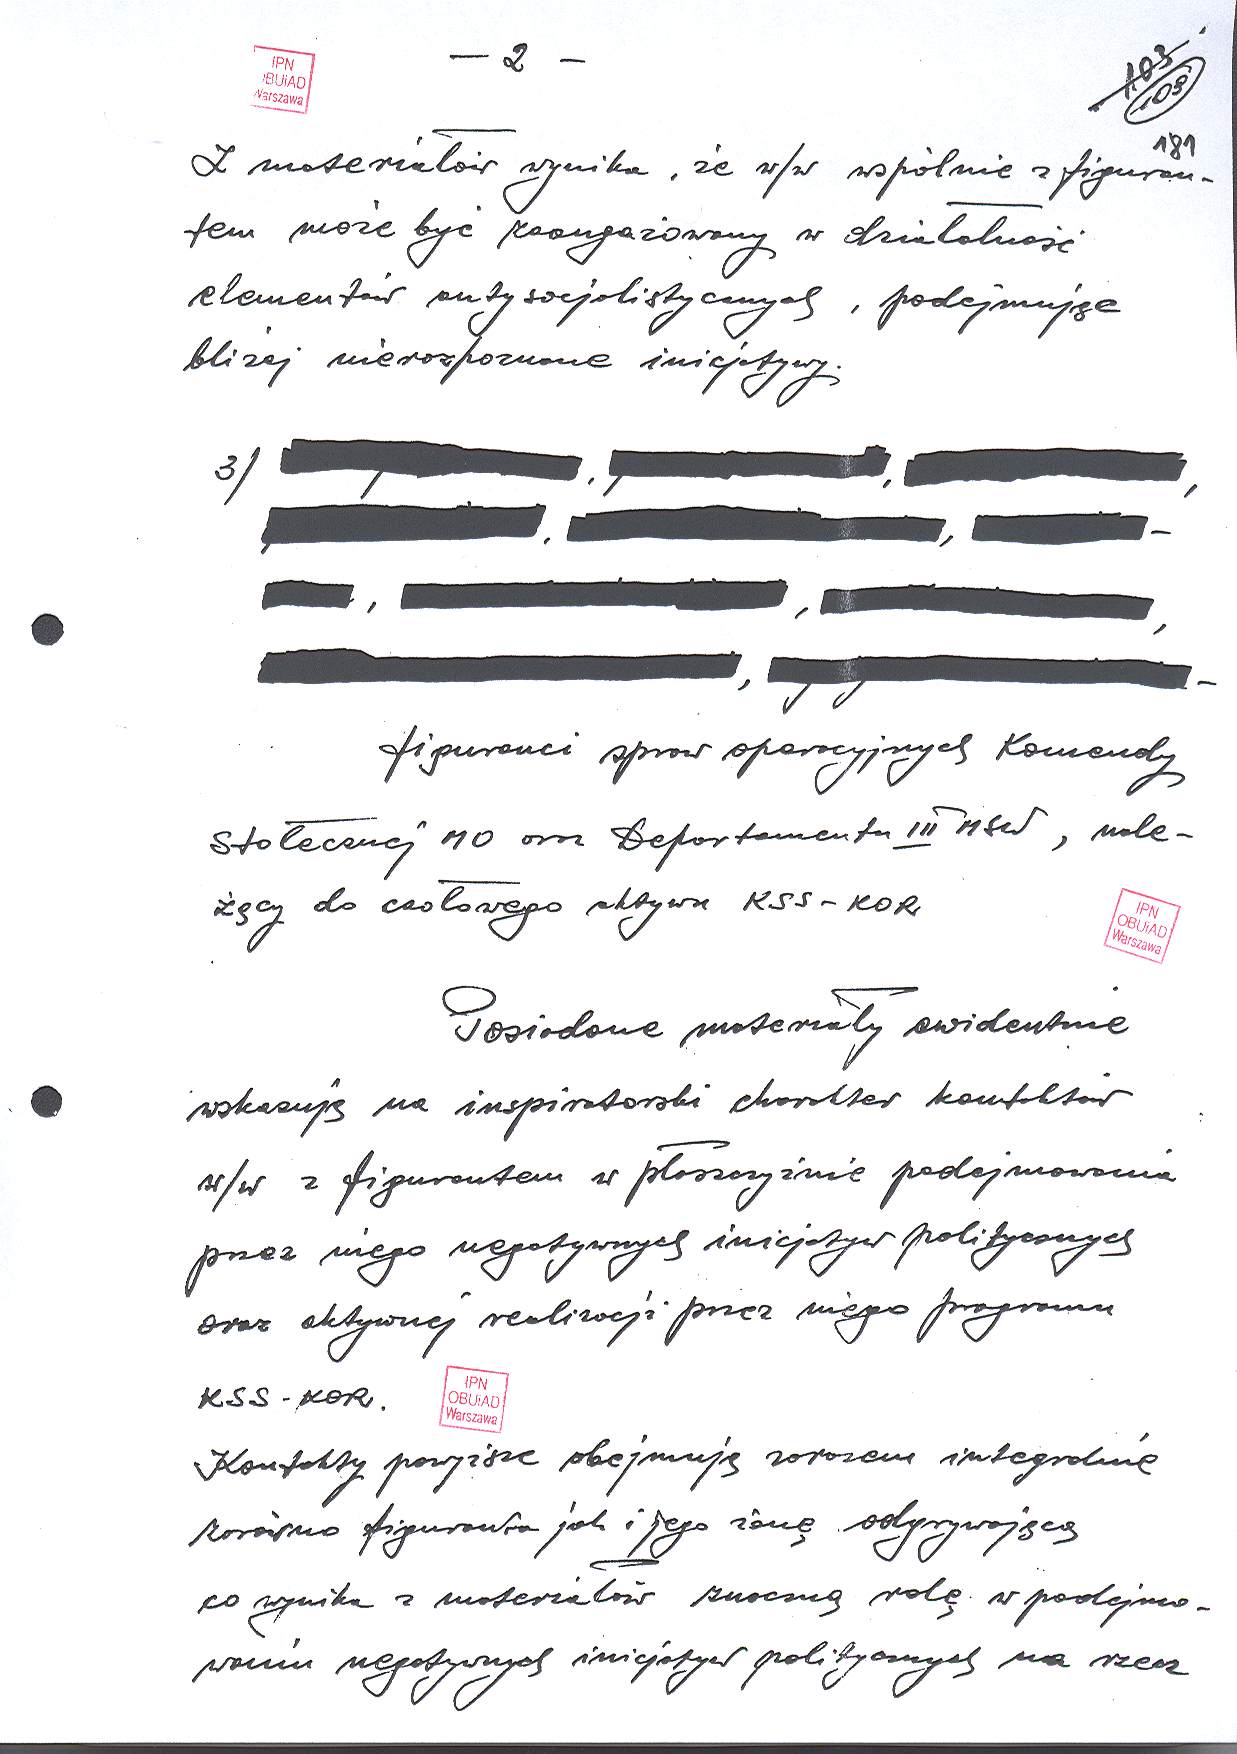 IPN
OBUiAD
Warszawa
- 2 -
103
103
181
Z materiałów wynika, że w/w wspólnie z figuran-
tem może być zaangażowany w działalność
elementów antysocjalistycznych, podejmując
bliżej nierozpoznane inicjatywy.
3/
figuranci spraw operacyjnych Komendy
Stołecznej MO oraz Departamentu III MSW, nale-
żący do czołowego aktywu KSS-KOR
IPN
OBUiAD
Warszawa
Posiadane materiały ewidentnie
wskazują na inspiratorski charakter kontaktów
w/w z figurantem w płaszczyźnie podejmowania
przez niego negatywnych inicjatyw politycznych
oraz aktywnej realizacji przez niego programu
KSS-KOR.
IPN
OBUiAD
Warszawa
Kontakty powyższe obejmują zarazem integralnie
zarówno figuranta jak i jego żonę odgrywającą
co wynika z materiałów znaczną rolę w podejmo-
waniu negatywnych inicjatyw politycznych na rzecz